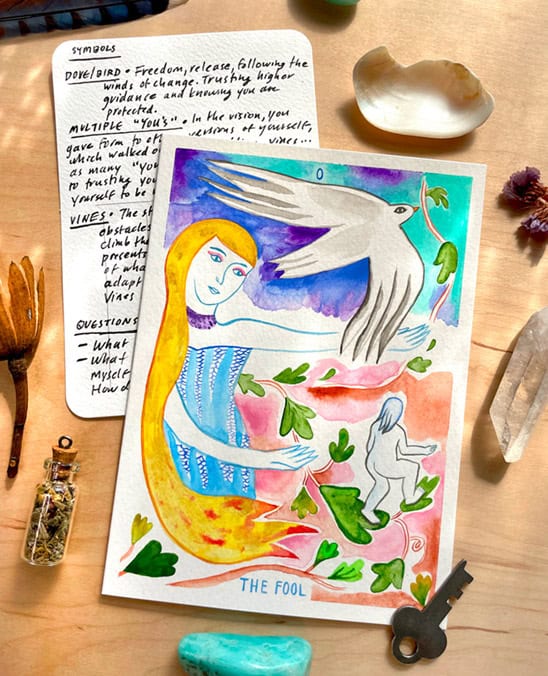 SYMBOLS
DOVE/BIRD • Freedom, release, following the
winds of change. Trusting higher
guidance and knowing you are
protected.
MULTIPLE "YOU'S" • In the vision, you
gave form to versions of yourself,
which walked vines...
as many
to trusting
yourself to be
VINES • The
obstacles
climb the
of
adapt
Vines
QUESTIONS
- What
- What
Myself
How
0
THE FOOL